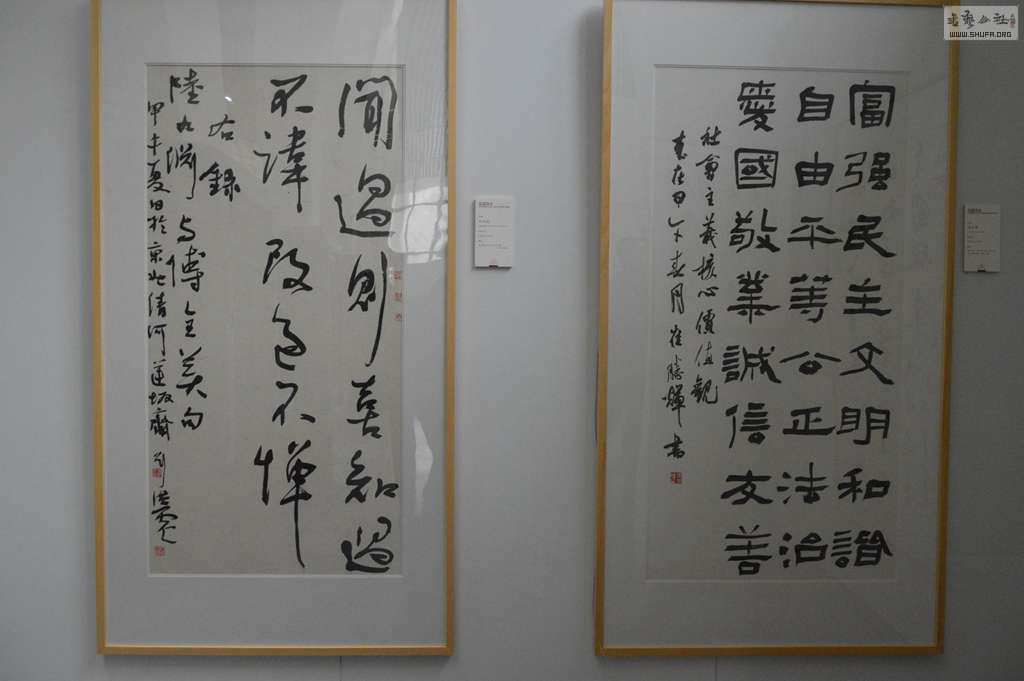 聞過則喜知過
不諱改過不憚
右錄
陸九淵與傅全美句
甲午夏日於京北清河蓮坂齋
富强民主文明和諧
自由平等公正法治
愛國敬業誠信友善
社會主義核心價值觀
歲在甲午春月崔勝輝書
書藝公社
WWW.SHUFA.ORG